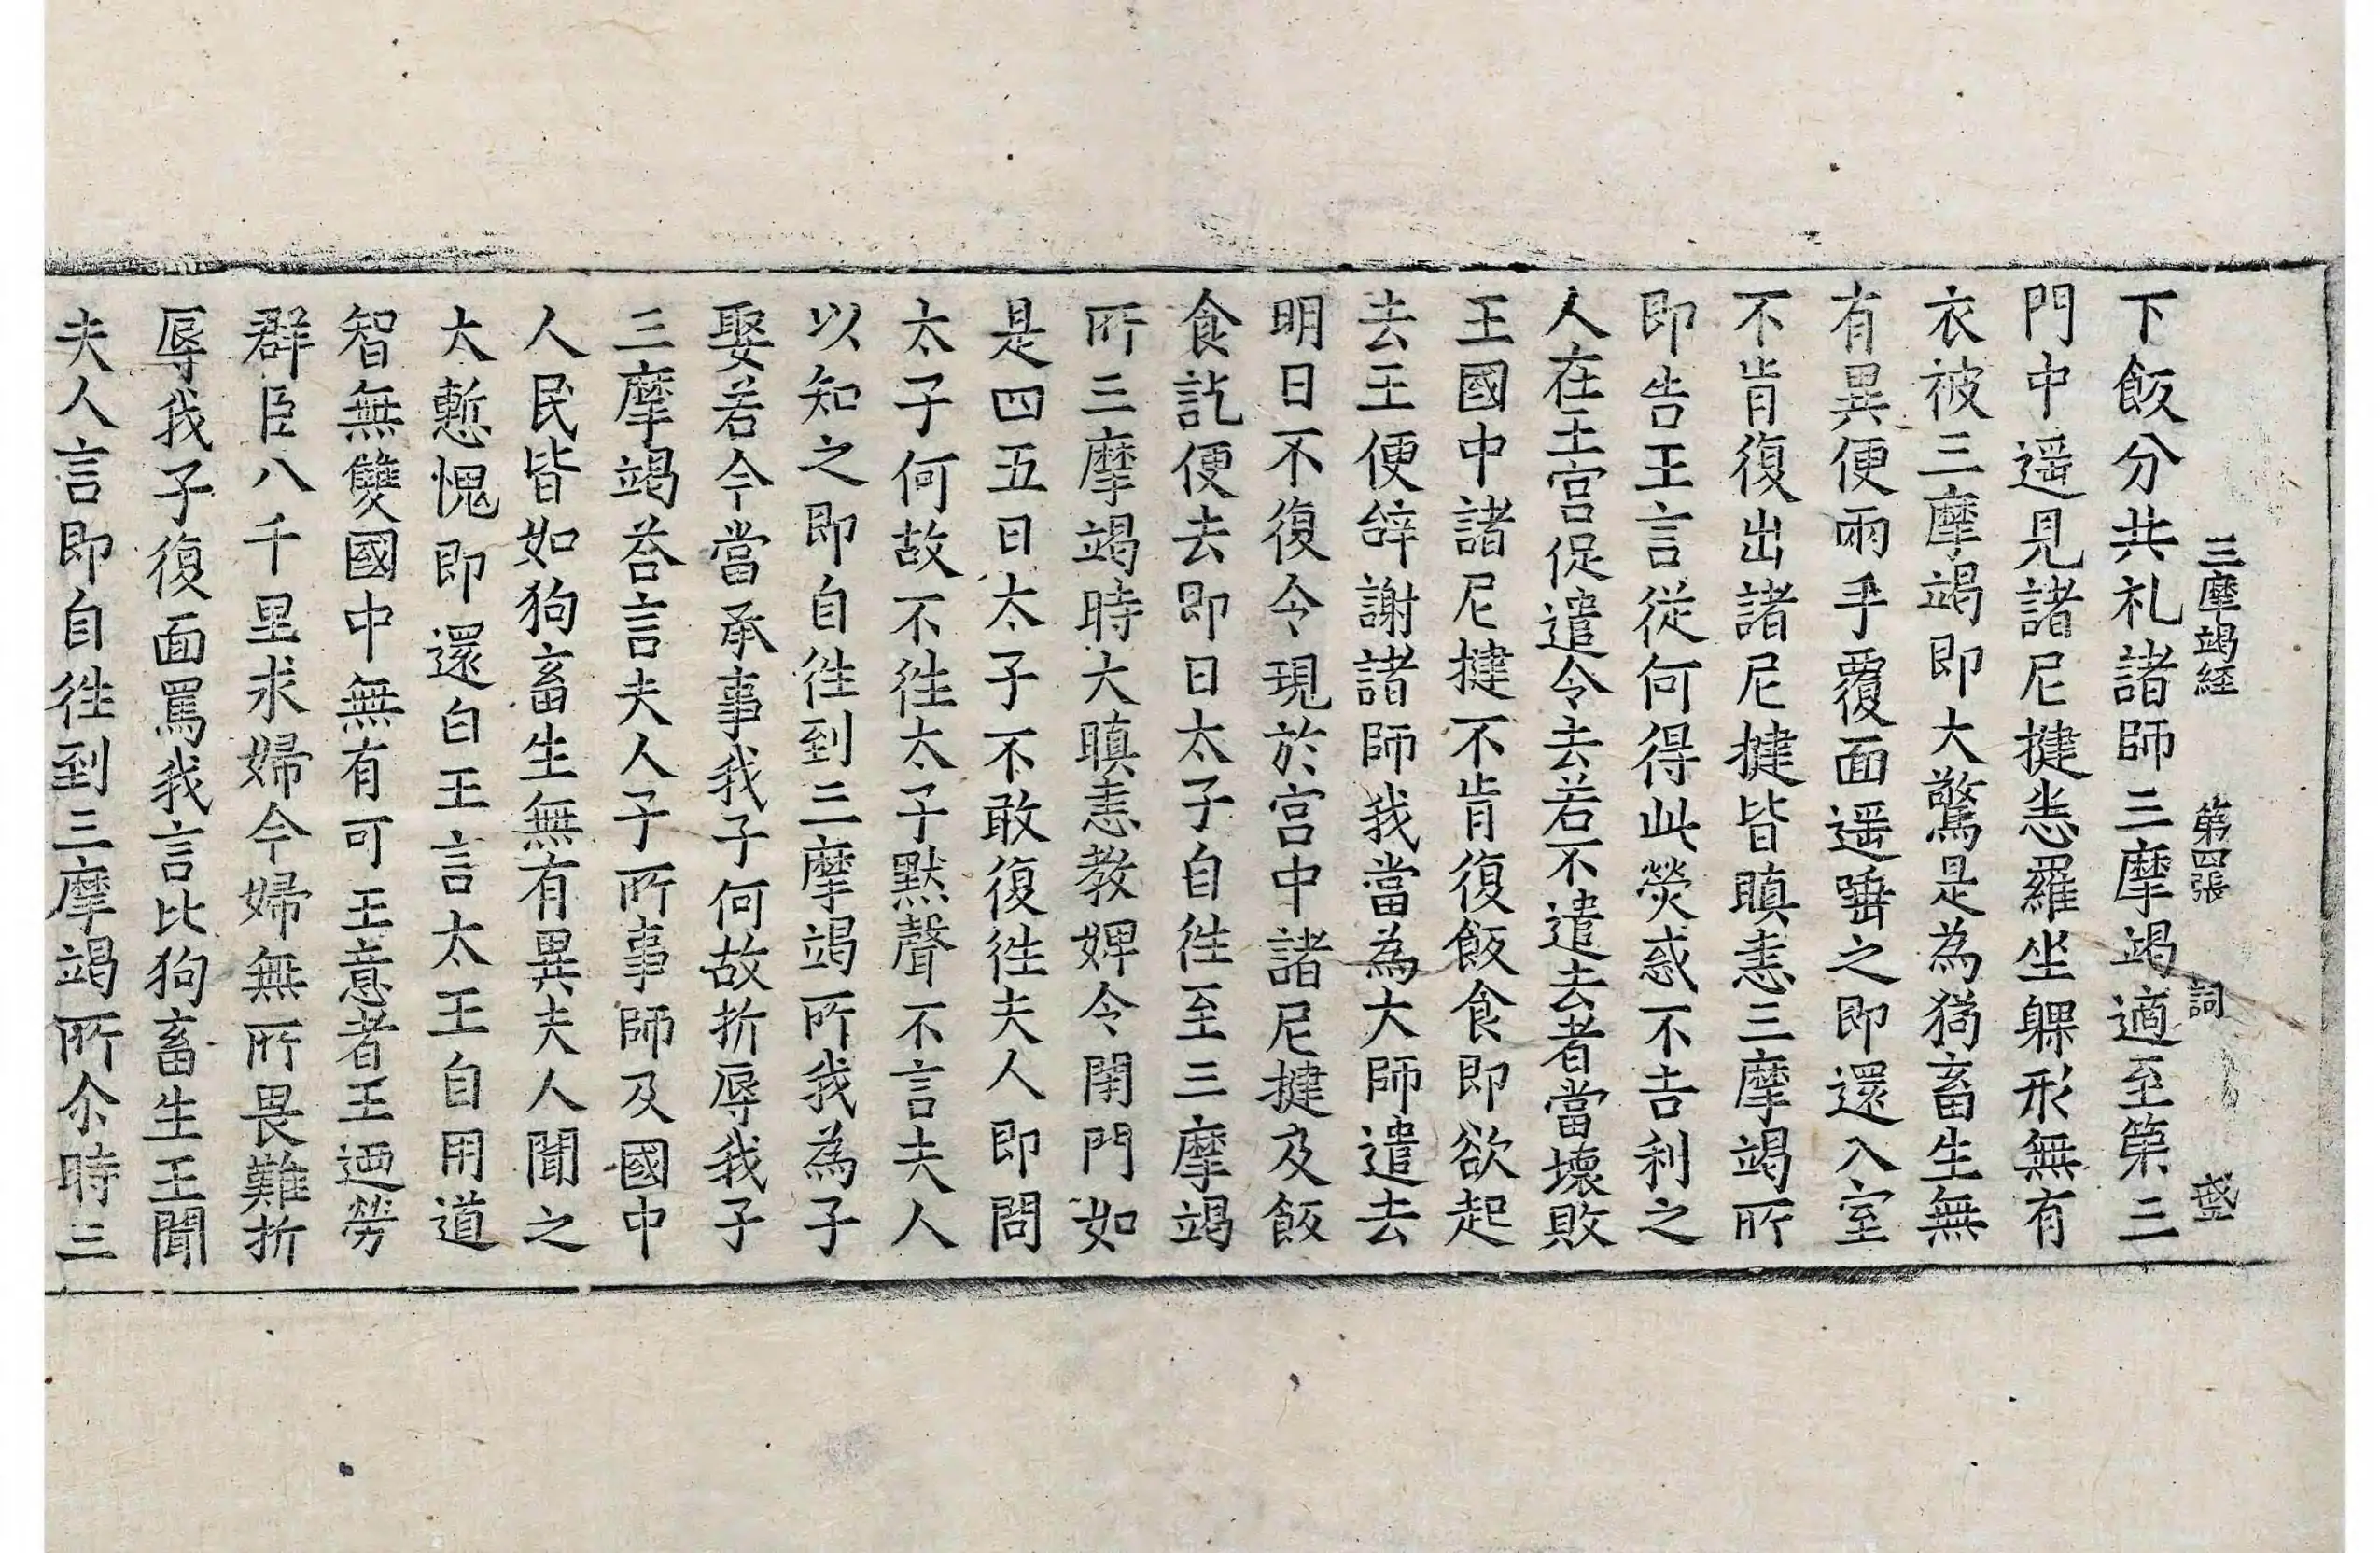 三摩竭経 第四張 詞 盛
下飯分共礼諸師三摩竭適至第三
門中遥見諸尼揵恚羅坐躶形無有
衣被三摩竭即大驚是為㺃畜生無
有異便兩手覆面遥唾之即還入室
不肯復出諸尼揵皆瞋恚三摩竭所
即告王言從何得此熒惑不吉利之
人在王宮促遣令去若不遣去者當壞敗
王國中諸尼揵不肯復飯食即欲起
去王便辝謝諸師我當為大師遣去
明日不復令現於宮中諸尼揵及飯
食訖便去即日太子自徃至三摩竭
所三摩竭時大瞋恚教婢令閇門如
是四五日太子不敢復徃夫人即問
太子何故不徃太子默聲不言夫人
以知之即自徃到三摩竭所我為子
娶若今當承事我子何故折辱我子
三摩竭荅言夫人子所事師及國中
人民皆如狗畜生無有異夫人聞之
大慙愧即還白王言太王自用道
智無雙國中無有可王意者王迺勞
群臣八千里求婦今婦無所畏難折
辱我子復面罵我言比狗畜生王聞
夫人言即自徃到三摩竭所尒時三